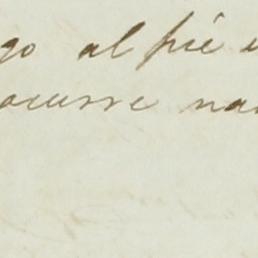 go al pié
ocurre na